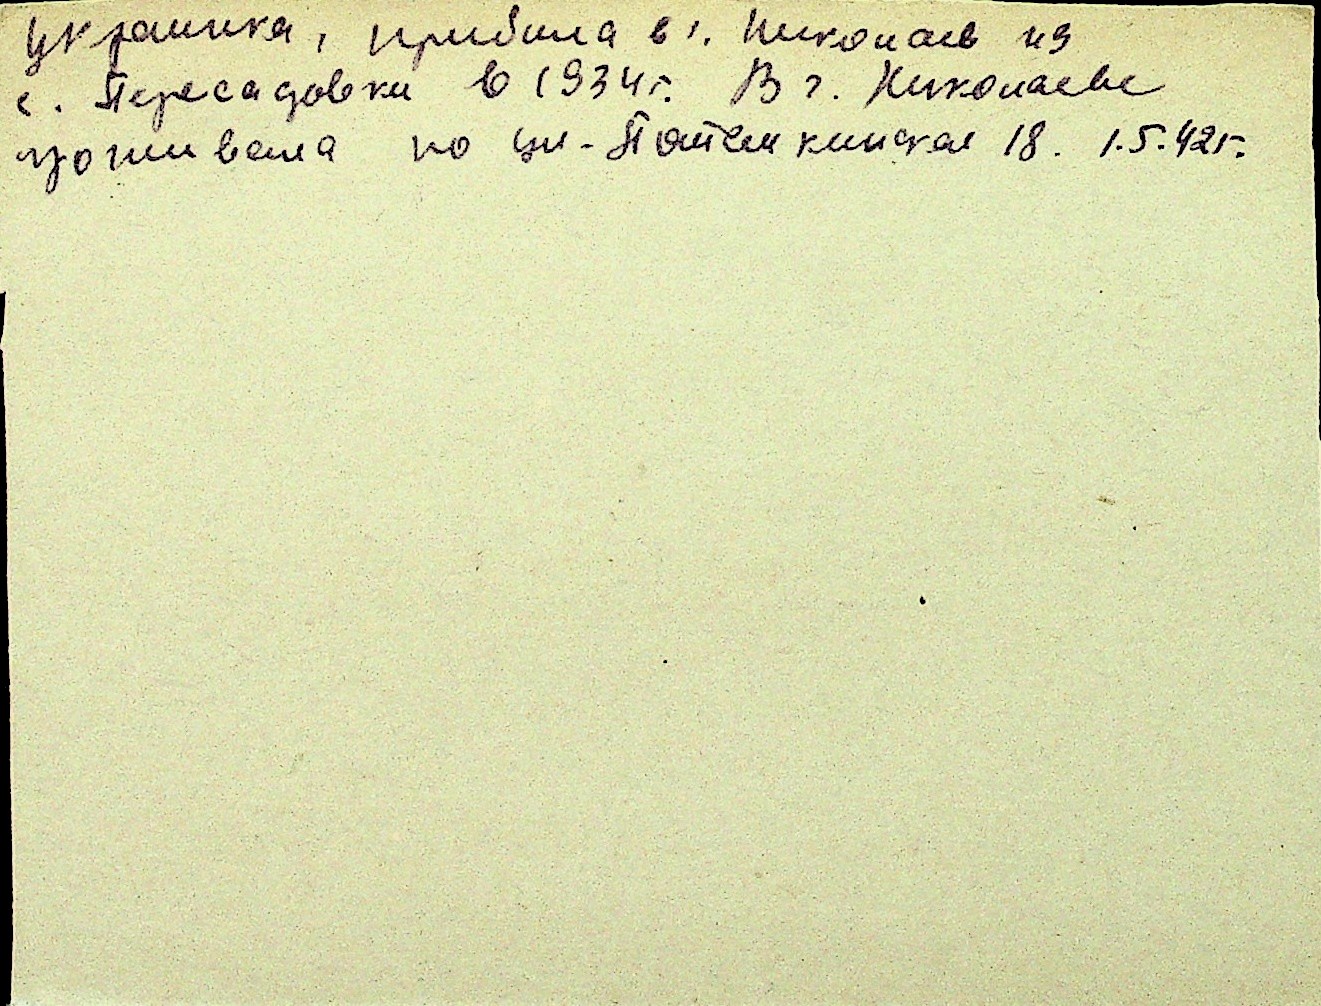 Украинка, прибыла в г. Николаев из
с. Пересадовки в 1934 г. В г. Николаеве
проживала по ул. Потемкинская 18. 1.5.42г.